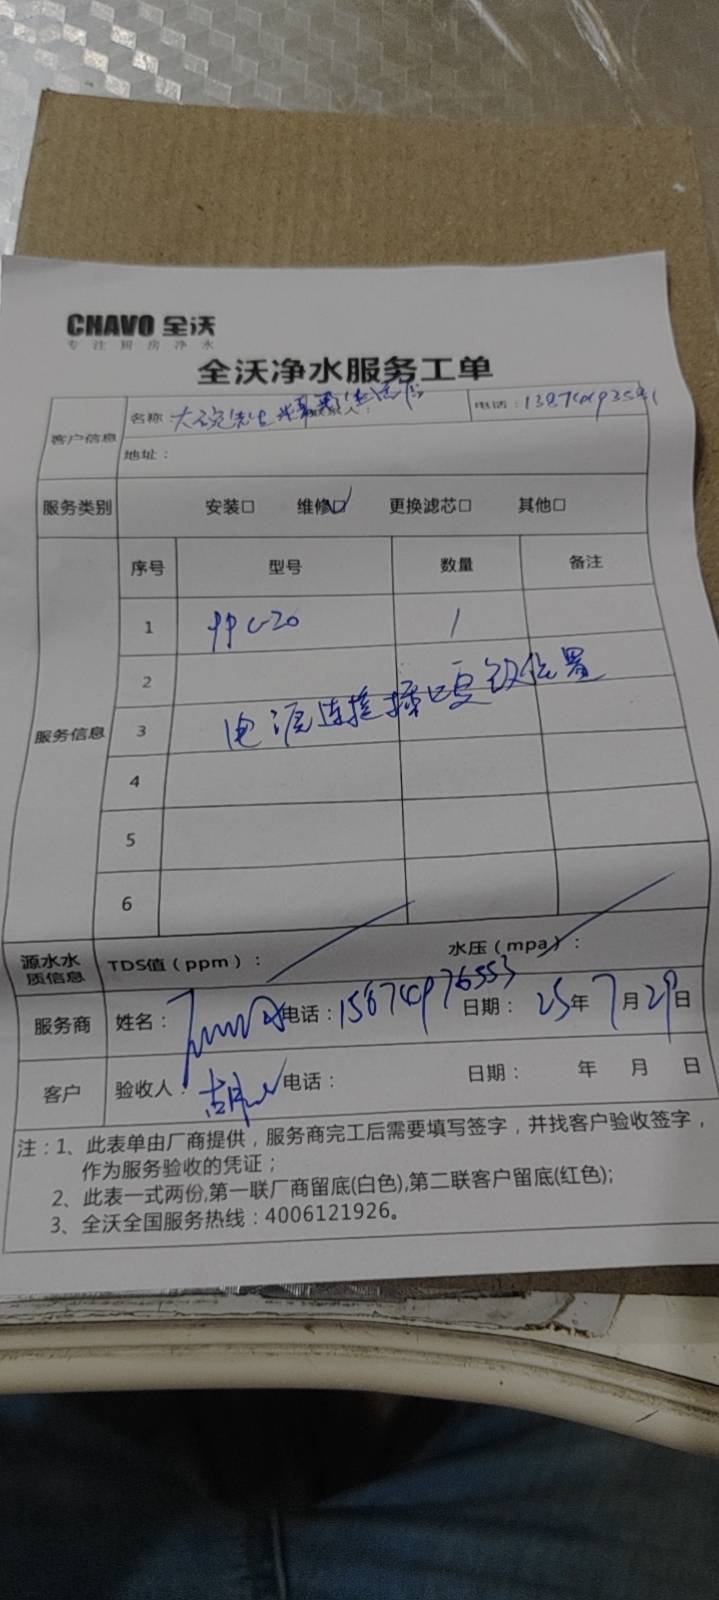 CHAVO 全沃
专注厨房净水
全沃净水服务工单
客户信息
名称：大碗先生
电话：
地址：
服务类别 安装□ 维修□ 更换滤芯□ 其他□
服务信息
序号 型号 数量 备注
1 PPC-20 1
2
3 电源连接插口更改位置
4
5
6
源水水质信息 TDS值（ppm）： 水压（mpa）：
服务商 姓名： 电话：15874976553 日期：25年7月29日
客户 验收人：胡 电话： 日期： 年 月 日
注：1、此表单由厂商提供，服务商完工后需要填写签字，并找客户验收签字，
作为服务验收的凭证；
2、此表一式两份,第一联厂商留底(白色),第二联客户留底(红色);
3、全沃全国服务热线：4006121926。